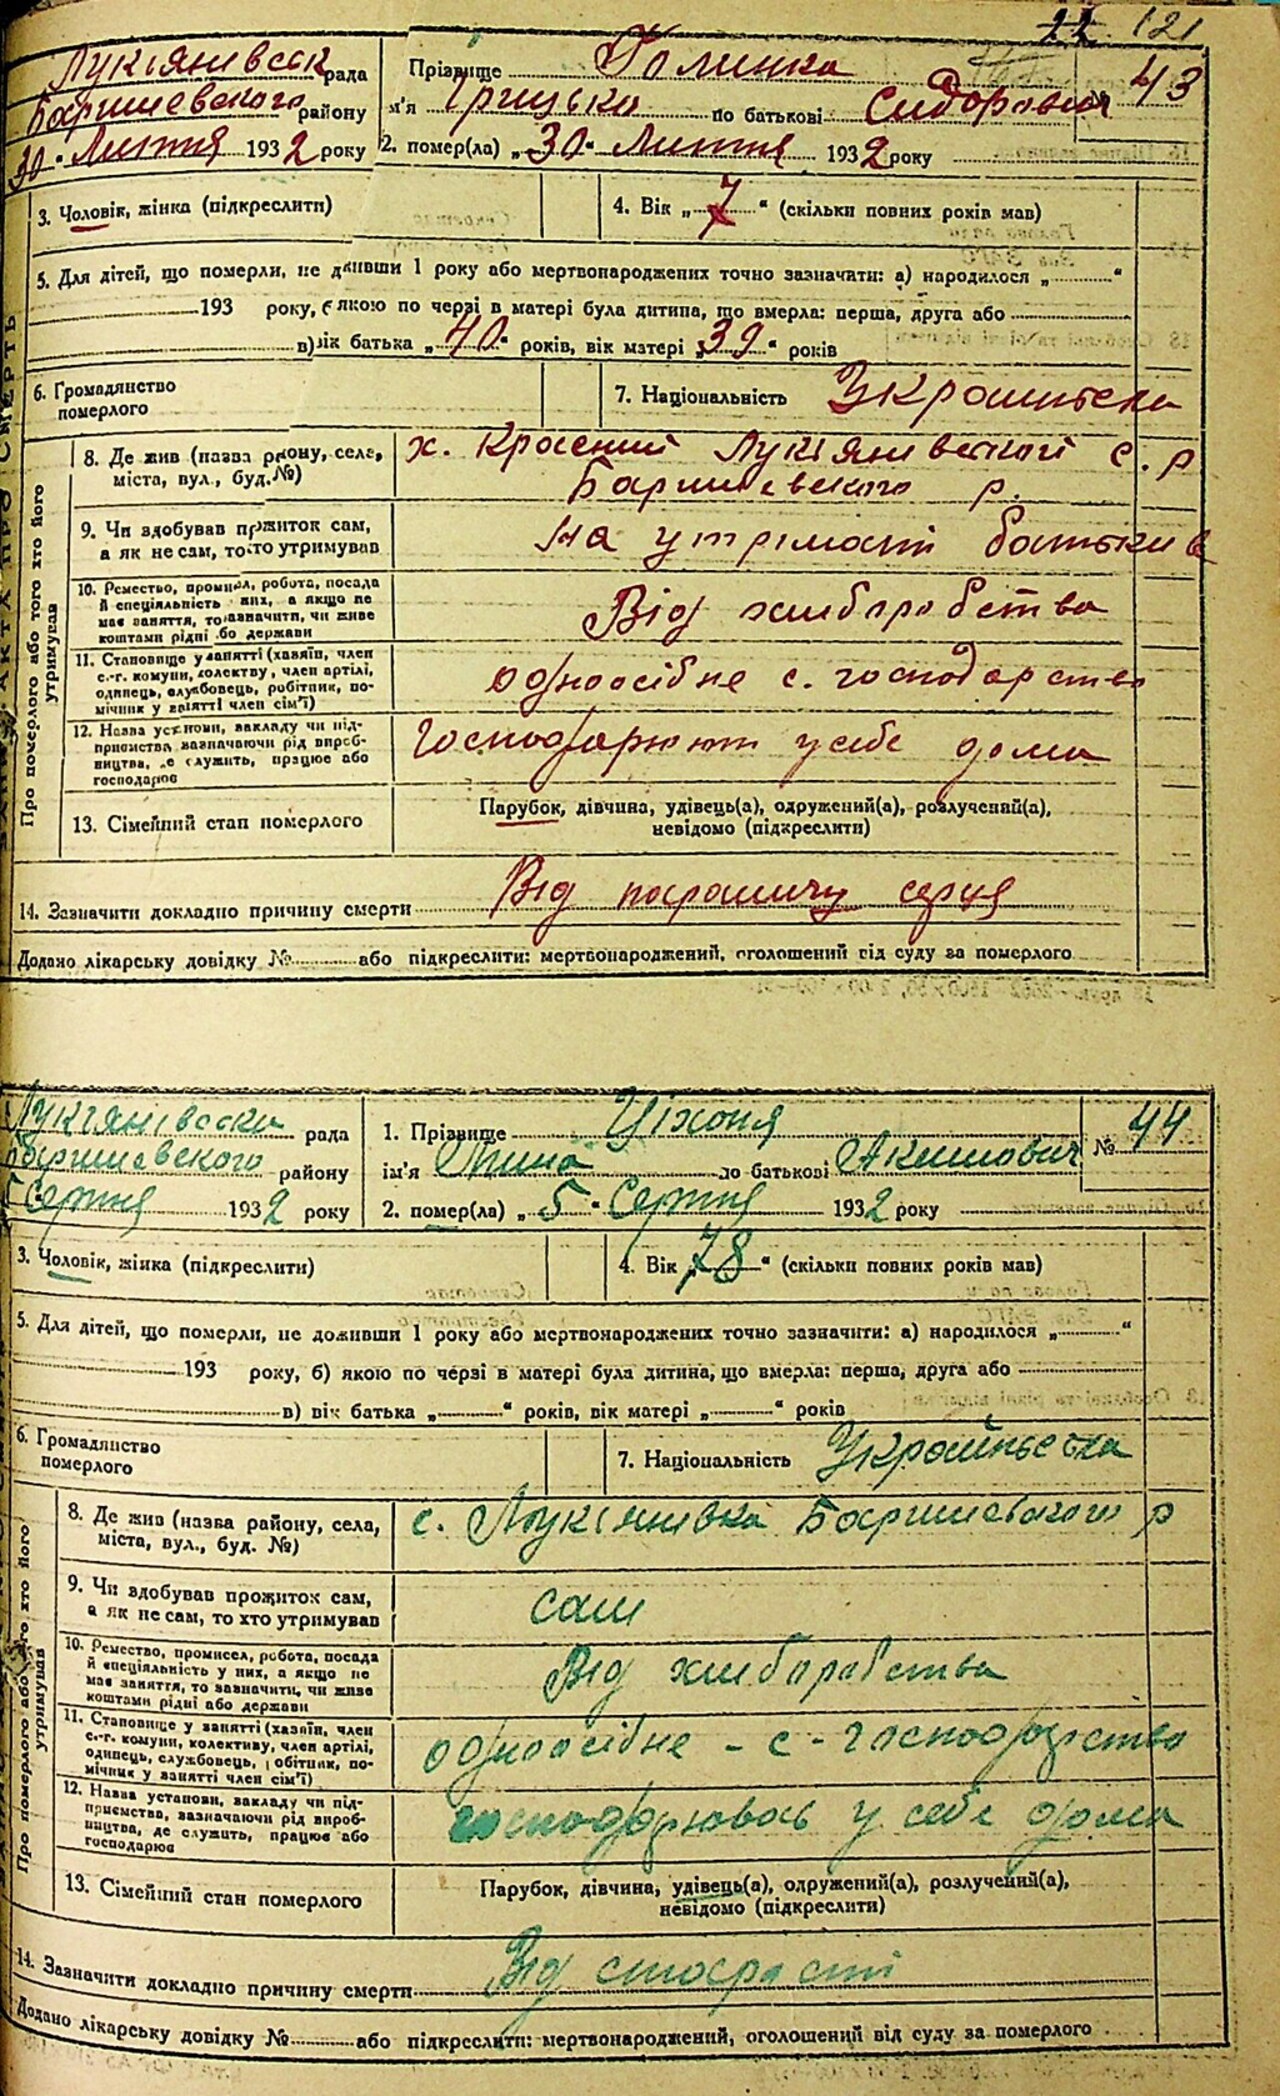 22 121
Лукіянівськ рада Прізвище Холинка 43
Баришевського району ім'я Грицько по батькові Сидорович
30 Липня 1932 року 2. помер(ла) „ 30 " Липня 1932 року
3. Чоловік, жінка (підкреслити) 4. Вік „ 7 " (скільки повних років мав)
5. Для дітей, що померли, не дживши 1 року або мертвонароджених точно зазначити: а) народилося „ "
193 року, якою по черзі в матері була дитина, що вмерла: перша, друга або
в) вік батька „ 40 " років, вік матері „ 39 " років
6. Громадянство померлого 7. Національність Украінська
8. Де жив (назва району, села, міста, вул., буд. №) х. Красний Лукіянивської с. р
Баришевського р.
9. Чи здобував прожиток сам, а як не сам, то хто утримував на утриманні батьків
10. Ремество, промисел, робота, посада
й спеціяльність них, а якщо не
має заняття, то зазначити, чи живе
коштами рідні або держави Від хліборобства
11. Становище у занятті (хазяїн, член
с.-г. комуни, колектву, член артілі,
одинець, службовець, робітник, по-
мічник у занятті член сім'ї) одноосібне с. господарство
12. Назва установи, закладу чи під-
приємства зазначаючи рід вироб-
ництва, де служить, працює або
господарює Господарюют у себе дома
13. Сімейний стан померлого Парубок, дівчина, удівець(а), одружений(а), розлучений(а),
невідомо (підкреслити)
14. Зазначити докладно причину смерти Від порашичу серця
Додано лікарську довідку № або підкреслити: мертвонароджений, оголошений від суду за померлого
Лукіянівська рада 1. Прізвище Ціхоня № 44
Баришевського району ім'я по батькові Акимович
5 Серпня 1932 року 2. помер(ла) „ 5 " Серпня 1932 року
3. Чоловік, жінка (підкреслити) 4. Вік „ 78 " (скільки повних років мав)
5. Для дітей, що померли, не доживши 1 року або мертвонароджених точно зазначити: а) народилося „ "
193 року, б) якою по черзі в матері була дитина, що вмерла: перша, друга або
в) вік батька „ " років, вік матері „ " років
6. Громадянство померлого 7. Національність Украйньська
8. Де жив (назва району, села, міста, вул., буд. №) с. Лукіянивка Баришевського р
9. Чи здобував прожиток сам, а як не сам, то хто утримував сам
10. Ремество, промисел, робота, посада
й спеціяльність у них, а якщо не
має заняття, то зазначити, чи живе
коштами рідні або держави Від хліборобства
11. Становище у занятті (хазяїн, член
с.-г. комуни, колективу, член артілі,
одинець, службовець, робітник, по-
мічник у занятті член сім'ї) одноосібне - с - господарство
12. Назва установи, закладу чи під-
приємства, зазначаючи рід вироб-
ництва, де служить, працює або
господарює господарювавь у себе дома
13. Сімейний стан померлого Парубок, дівчина, удівець(а), одружений(а), розлучений(а),
невідомо (підкреслити)
14. Зазначити докладно причину смерти Від старости
Додано лікарську довідку № або підкреслити: мертвонароджений, оголошений від суду за померлого